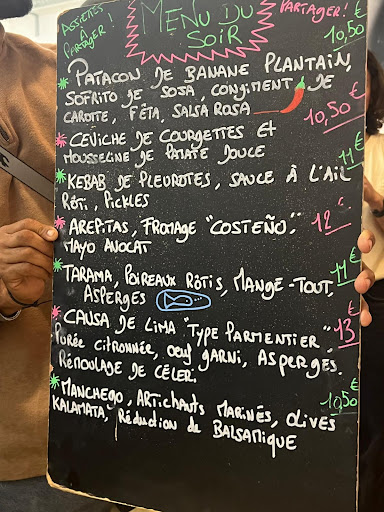 ASSIETTES
À
PARTAGER !
MENU DU
SOIR
PARTAGER !
* PATACON DE BANANE PLANTAIN, 10,50€
SOFRITO DE SOSA, CONDIMENT DE
CAROTTE, FÊTA, SALSA ROSA
* CEVICHE DE COURGETTES ET 10,50€
MOUSSELINE DE PATATE DOUCE
* KEBAB DE PLEUROTES, SAUCE À L'AIL 11€
RÔTI, PICKLES
* AREPITAS, FROMAGE "COSTEÑO", 12€
MAYO AVOCAT
* TARAMA, POIREAUX RÔTIS, MANGE-TOUT, 11€
ASPERGES
* CAUSA DE LIMA "TYPE PARMENTIER" 13€
PURÉE CITRONNÉE, OEUF GARNI, ASPERGES.
RÉMOULADE DE CÉLERI.
* MANCHEGO, ARTICHAUTS MARINÉS, OLIVES 10,50€
KALAMATA, RÉDUCTION DE BALSAMIQUE